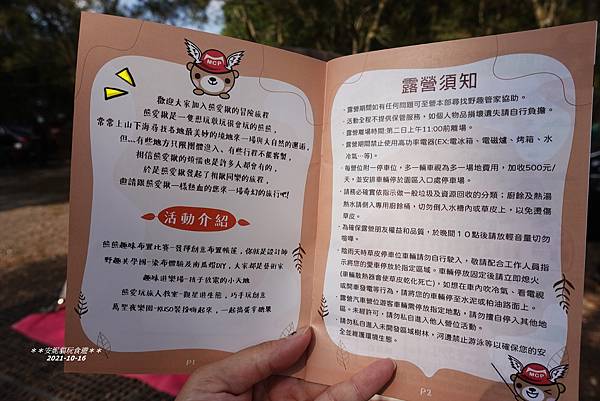 MCP
歡迎大家加入熊愛揪的冒險旅程
熊愛揪是一隻想玩敢玩很會玩的熊熊，
常常上山下海尋找各地最美妙的境地來一場與大自然的邂逅，
但...有些地方只限團體進入、有些行程不能客製，
相信熊愛揪的煩惱也是許多人都會有的，
於是熊愛揪發起了相揪同樂的旅程，
邀請跟熊愛揪一樣熱血的您來一場奇幻的旅行吧!
活動介紹
熊熊趣味布置比賽-發揮創意布置帳篷，你就是設計師
野趣美學團-染布體驗及南瓜燈DIY，大家都是藝術家
趣味遊樂場-孩子放電的小天地
熊愛玩旅人教室-觀星遊生態，巧手玩創意
萬聖夜樂園-KUSO裝扮嗨起來，一起搞蛋拿糖果
P1
**安妮貓玩食趣**
2021-10-16
MCP
露營須知
·露營期間如有任何問題可至營本部尋找野趣管家協助。
·活動全程不提供保管服務，如個人物品損壞遺失請自行負擔。
·露營離場時間:第二日上午11:00前離場。
·露營期間禁止使用高功率電器(EX:電冰箱、電磁爐、烤箱、水
冷氣…等)。
·每營位附一停車位，多一輛車視為多一場地費用，加收500元/
天，並安排車輛停於園區入口處停車場。
·請務必確實依指示做一般垃圾及資源回收的分類；廚餘及熱湯
熱水請倒入專用廚餘桶，切勿倒入水槽內或草皮上，以免燙傷
草皮。
·為確保露營朋友權益和品質，於晚間10點後請放輕音量切勿
喧嘩。
·陰雨天時草皮停車位車輛請勿自行駛入，敬請配合工作人員指
示將您的愛車停放於指定區域。車輛停放固定後請立即熄火
(車輛散熱器會使草皮乾化死亡)，如想在車內吹冷氣、看電視
或開車發電等行為，請將您的車輛停至水泥或柏油路面上。
·露營汽車營位遊客車輛需停放指定地點，請勿擅自停入其他地
區。未經許可，請勿私自進入他人營位活動。
·請勿私自進入未開發區域樹林，河邊禁止游泳等以確保您的安
全並維護環境生態。
P2
MCP